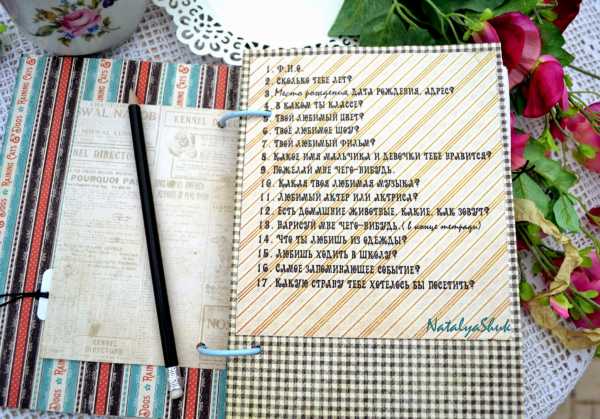 RAINING CATS & DOGS
KENNEL
KENNEL DIRECTOR
POURQUOI PA
KENNEL
DIRECTORY
1. Ф.И.О.
2. СКОЛЬКО ТЕБЕ ЛЕТ?
3. Место рождения, ДАТА РОЖДЕНИЯ, АДРЕС?
4. В КАКОМ ТЫ КЛАССЕ?
5. ТВОЙ ЛЮБИМЫЙ ЦВЕТ?
6. ТВОЁ ЛЮБИМОЕ ШОУ?
7. ТВОЙ ЛЮБИМЫЙ ФИЛЬМ?
8. КАКОЕ ИМЯ МАЛЬЧИКА И ДЕВОЧКИ ТЕБЕ НРАВИТСЯ?
9. ПОЖЕЛАЙ МНЕ ЧЕГО-НИБУДЬ.
10. КАКАЯ ТВОЯ ЛЮБИМАЯ МУЗЫКА?
11. ЛЮБИМЫЙ АКТЕР ИЛИ АКТРИСА?
12. ЕСТЬ ДОМАШНИЕ ЖИВОТНЫЕ, КАКИЕ, КАК ЗОВУТ?
13. НАРИСУЙ МНЕ ЧЕГО-НИБУДЬ.( в конце тетради)
14. ЧТО ТЫ ЛЮБИШЬ ИЗ ОДЕЖДЫ?
15. ЛЮБИШЬ ХОДИТЬ В ШКОЛУ?
16. САМОЕ ЗАПОМИНАЮЩЕЕ СОБЫТИЕ?
17. КАКУЮ СТРАНУ ТЕБЕ ХОТЕЛОСЬ БЫ ПОСЕТИТЬ?
NatalyaShuk